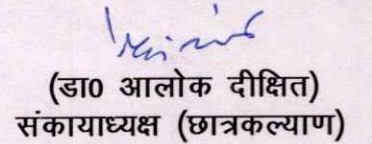 (डा0 आलोक दीक्षित)
संकायाध्यक्ष (छात्रकल्याण)